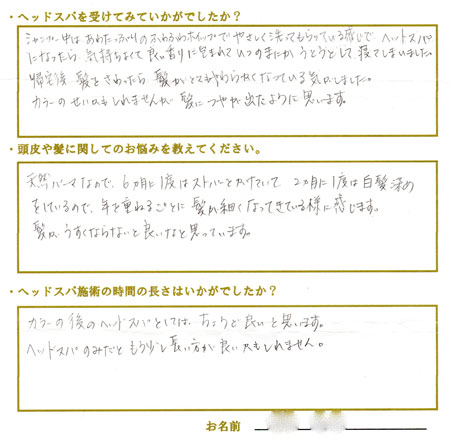 ・ヘッドスパを受けてみていかがでしたか？
シャンプー中は あわたっぷりの ふわふわホイップで やさしく洗ってもらっている感じで ヘッドスパ
になったら 気持ちよくて良い香りに包まれて いつのまにか うとうとして 寝てしまいました。
帰宅後 髪をさわったら 髪がとてもやわらかくなっている気がしました。
カラーのせいかもしれませんが 髪に つやが出たように思います。
・頭皮や髪に関してのお悩みを教えてください。
天然パーマなので、6カ月に1度はストパーをかけていて 2カ月に1度は白髪染め
をしているので、年を重ねるごとに 髪が細くなってきている様に感じます。
髪が うすくならないと良いなと思っています。
・ヘッドスパ施術の時間の長さはいかがでしたか？
カラーの後のヘッドスパとしては、ちょうど良いと思います。
ヘッドスパのみだと もう少し長い方が良いかもしれません。
お名前